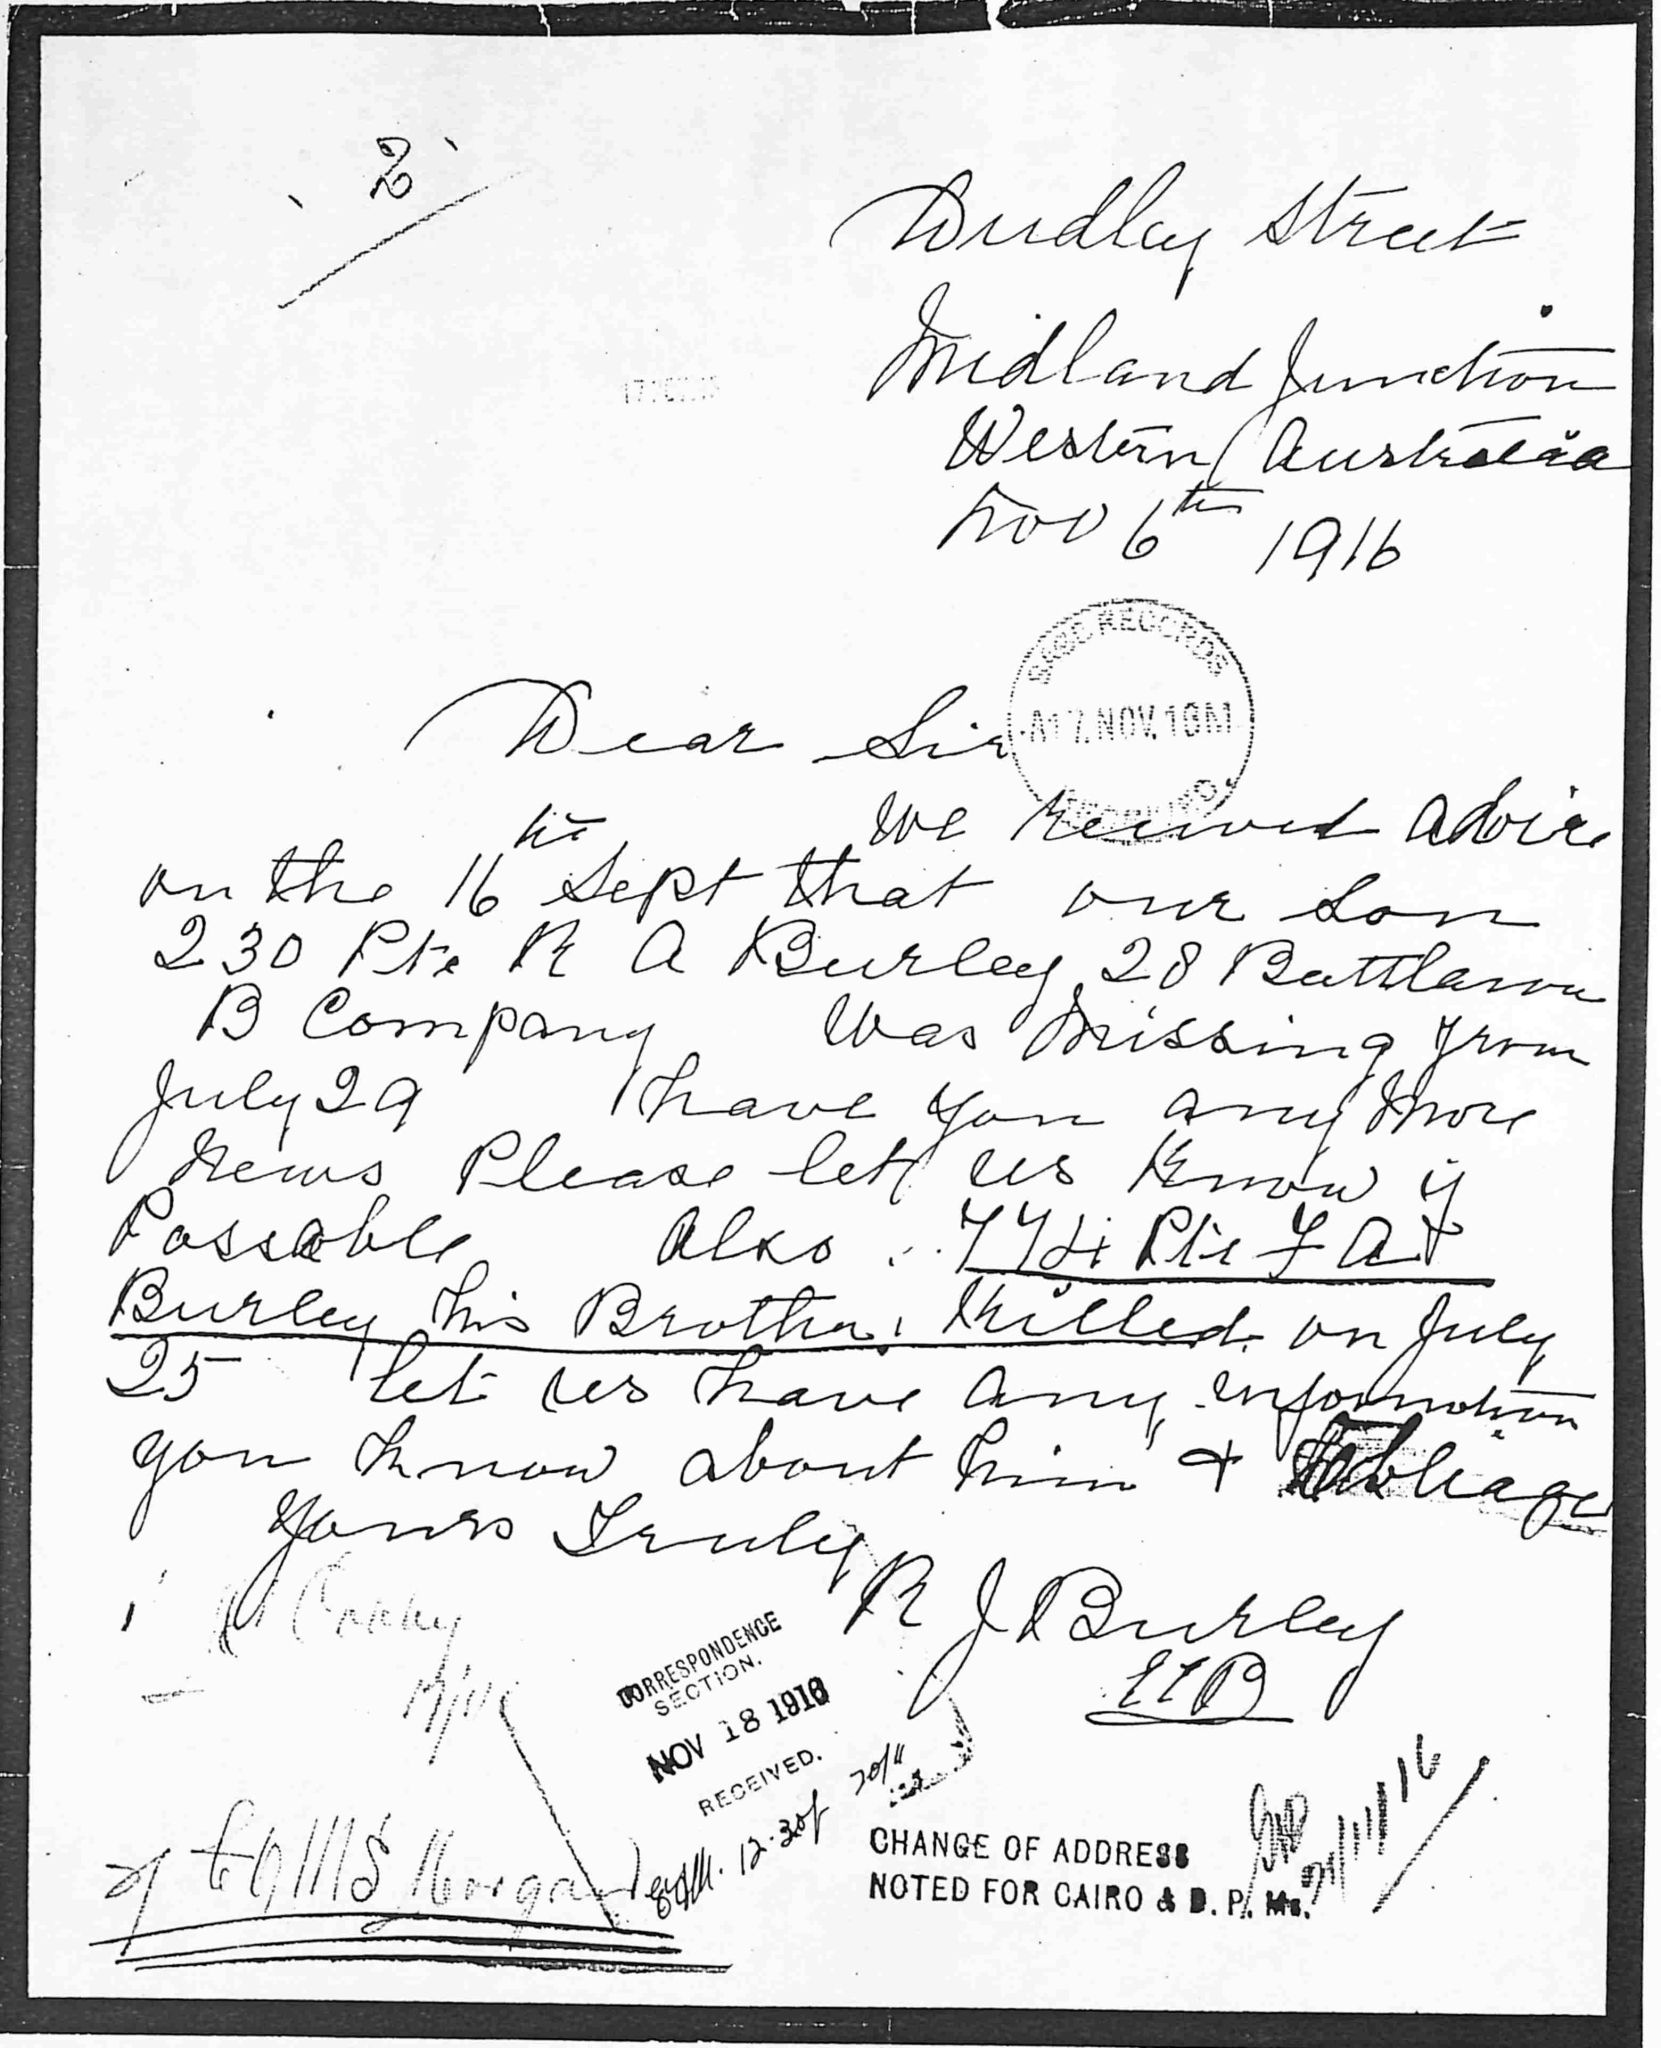 2
Dudley Street
Midland Junction
Western Australia
Nov 6th 1916
BASE RECORDS
17 NOV. 16
Dear Sir
We received advice
on the 16th Sept that our son
230 Pte R A Burley 28 Battlaion
B Company Was Missing from
July 29 have you any More
News Please let us Know if
Possable Also 774 Pte F A T
Burley his Brother Killed on July
25 let us have any information
you know about him + obliage
Yours Truly
R J Burley
CORRESPONDENCE
SECTION.
NOV 18 1916
RECEIVED.
12.30
20/11
CHANGE OF ADDRESS
NOTED FOR CAIRO & D. P. Ms.
21/11/16